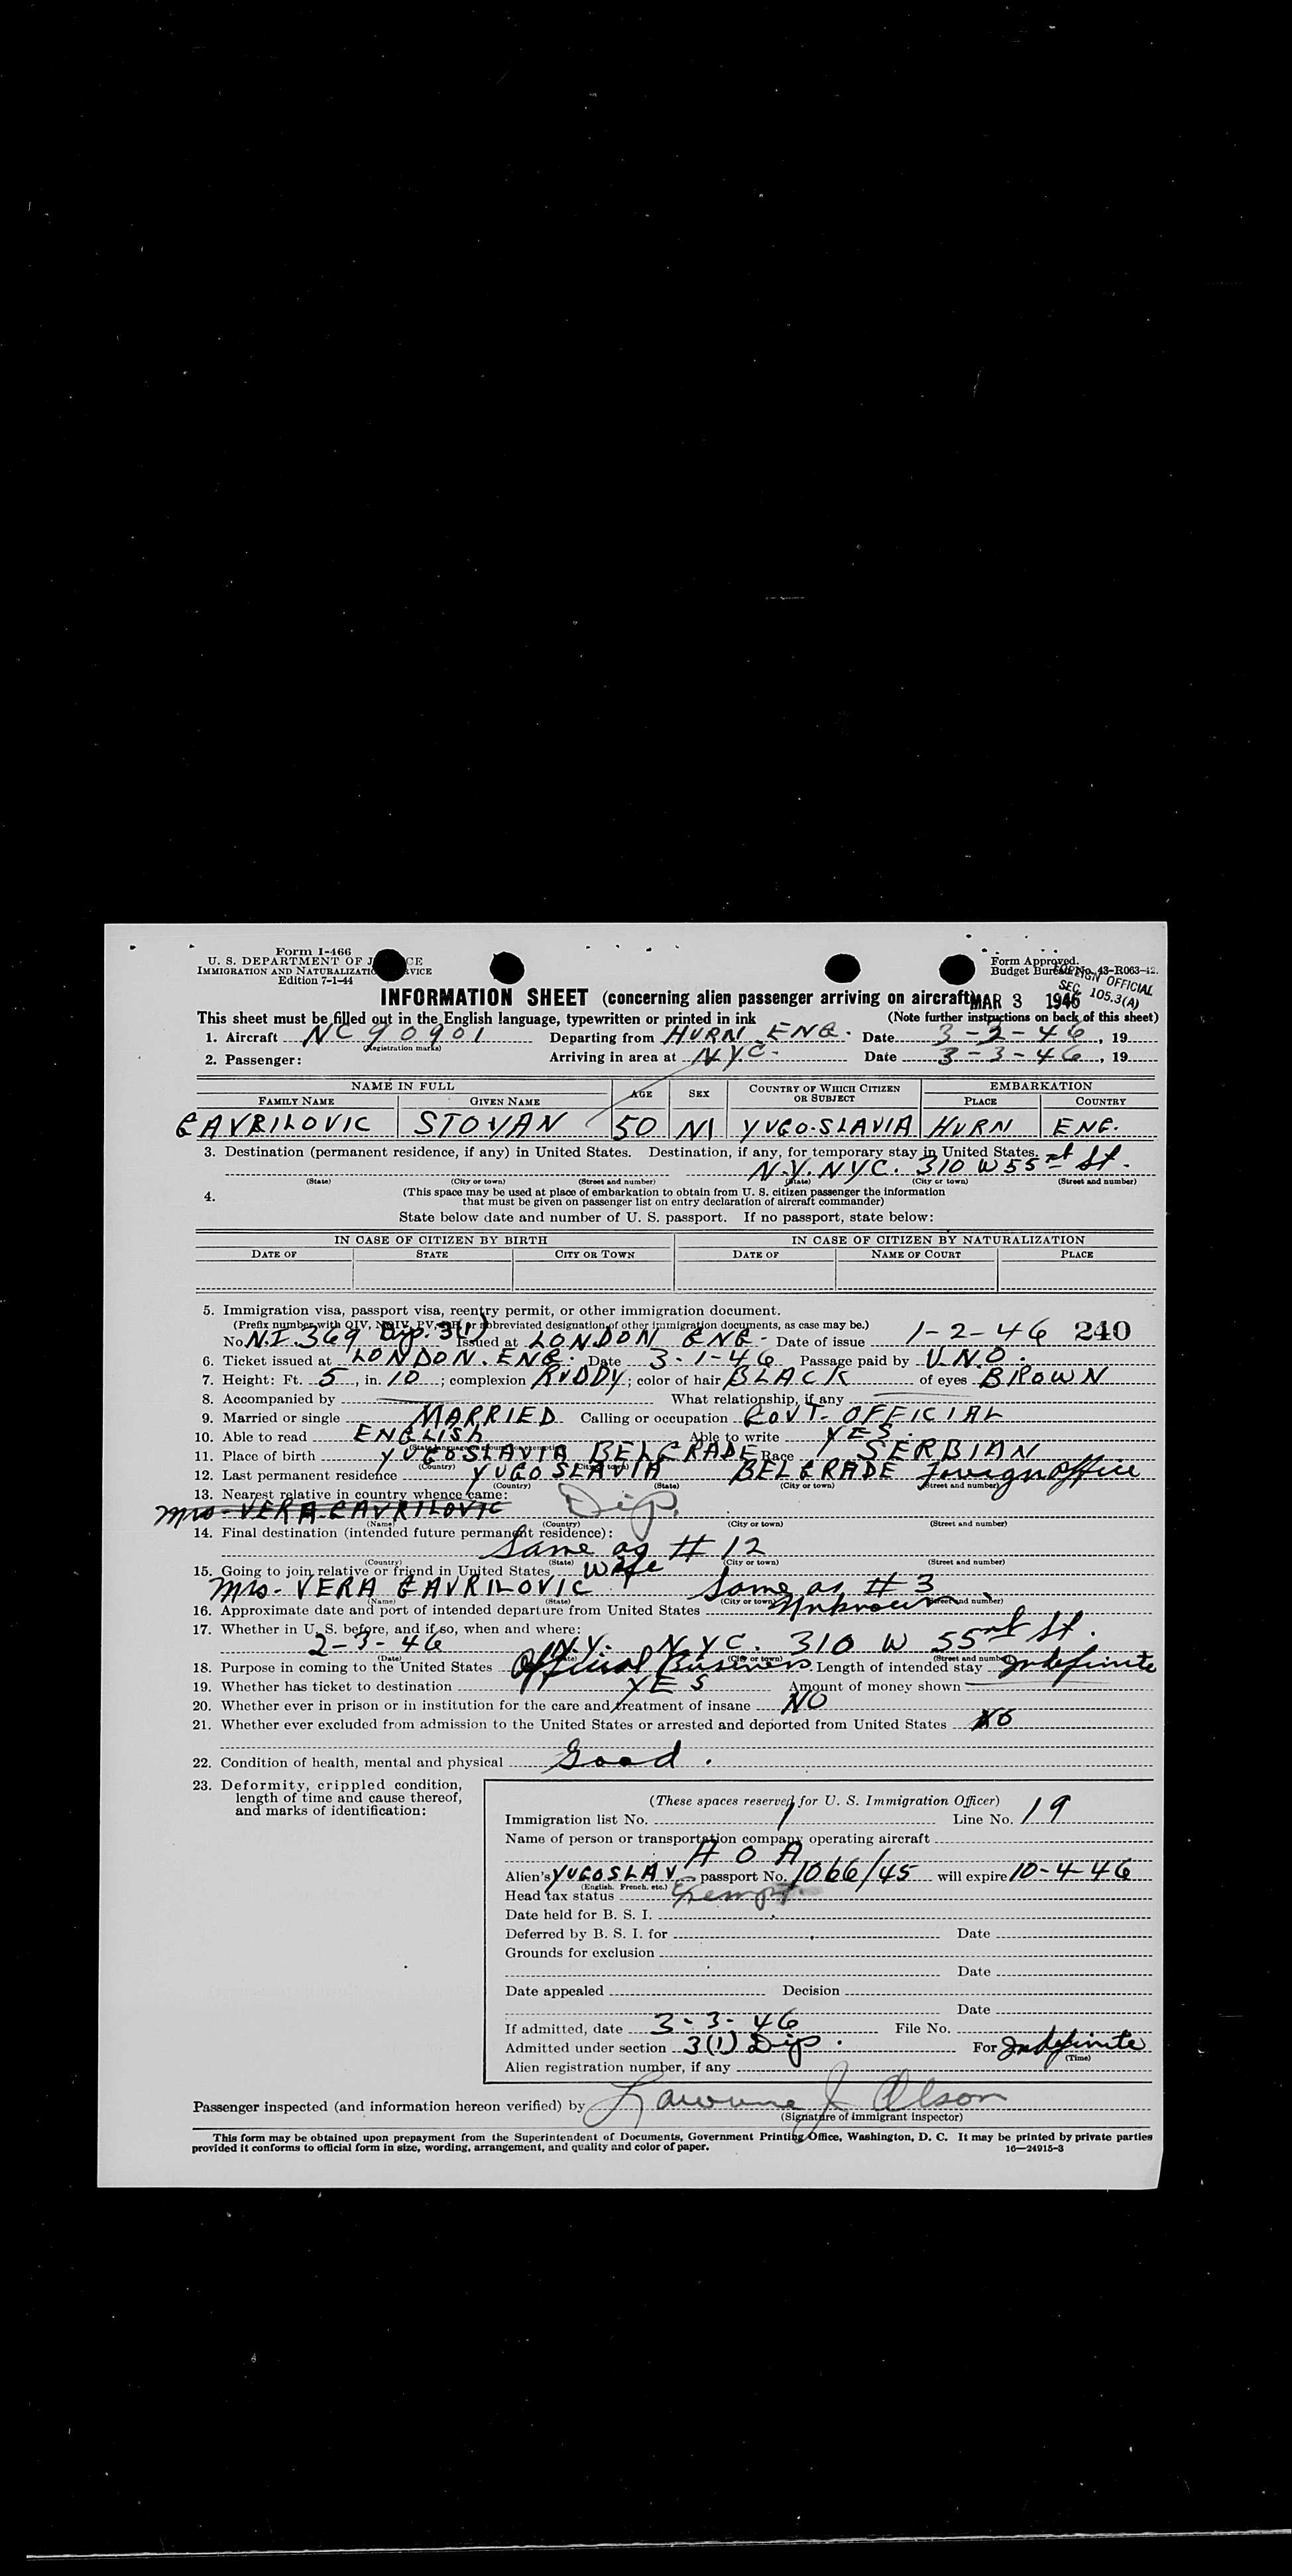 Form I-466
U. S. DEPARTMENT OF J CE
IMMIGRATION AND NATURALIZATIO VICE
Edition 7-1-44
Form Approved.
Budget Bureau No. 43-R063-42.
OFFICIAL
SEC. 105.3(A)
INFORMATION SHEET (concerning alien passenger arriving on aircraft)
MAR 3 1946
This sheet must be filled out in the English language, typewritten or printed in ink (Note further instructions on back of this sheet)
1. Aircraft NC90901 Departing from HURN ENG. Date 3-2-46, 19
(Registration marks)
2. Passenger: Arriving in area at N.Y.C. Date 3-3-46, 19
NAME IN FULL AGE SEX COUNTRY OF WHICH CITIZEN OR SUBJECT EMBARKATION
FAMILY NAME GIVEN NAME PLACE COUNTRY
GAVRILOVIC STOVAN 50 M YUGO-SLAVIA HURN ENG.
3. Destination (permanent residence, if any) in United States. Destination, if any, for temporary stay in United States.
N.Y. NYC. 310 W 55 St.
(State) (City or town) (Street and number) (State) (City or town) (Street and number)
4. (This space may be used at place of embarkation to obtain from U. S. citizen passenger the information
that must be given on passenger list on entry declaration of aircraft commander)
State below date and number of U. S. passport. If no passport, state below:
IN CASE OF CITIZEN BY BIRTH IN CASE OF CITIZEN BY NATURALIZATION
DATE OF STATE CITY OR TOWN DATE OF NAME OF COURT PLACE
5. Immigration visa, passport visa, reentry permit, or other immigration document.
(Prefix number with QIV, NQIV, PV, or abbreviated designation of other immigration documents, as case may be.)
No. N.I. 369 Dip. 3(1) Issued at LONDON ENG. Date of issue 1-2-46 240
6. Ticket issued at LONDON. ENG. Date 3-1-46 Passage paid by U.N.O.
7. Height: Ft. 5, in. 10; complexion RUDDY; color of hair BLACK of eyes BROWN
8. Accompanied by What relationship, if any
9. Married or single MARRIED Calling or occupation GOVT. OFFICIAL
10. Able to read ENGLISH Able to write YES.
11. Place of birth YUGOSLAVIA BELGRADE Race SERBIAN
(Country) (City or town)
12. Last permanent residence YUGOSLAVIA BELGRADE Foreign office
(Country) (State) (City or town) (Street and number)
13. Nearest relative in country whence came:
Mrs - VERA GAVRILOVIC Dip.
(Name) (Country) (City or town) (Street and number)
14. Final destination (intended future permanent residence):
Same as # 12
(Country) (State) (City or town) (Street and number)
15. Going to join relative or friend in United States Wife
Mrs - VERA GAVRILOVIC Same as # 3
(Name) (State) (City or town) (Street and number)
16. Approximate date and port of intended departure from United States Unknown
17. Whether in U. S. before, and if so, when and where:
2-3-46 N.Y. NYC. 310 W 55 St.
(Date) (State) (City or town) (Street and number)
18. Purpose in coming to the United States Official Business. Length of intended stay Indefinite
19. Whether has ticket to destination YES Amount of money shown
20. Whether ever in prison or in institution for the care and treatment of insane NO
21. Whether ever excluded from admission to the United States or arrested and deported from United States NO
22. Condition of health, mental and physical Good.
23. Deformity, crippled condition,
length of time and cause thereof,
and marks of identification:
(These spaces reserved for U. S. Immigration Officer)
Immigration list No. 1 Line No. 19
Name of person or transportation company operating aircraft
A O A
Alien's YUGOSLAV passport No. 1066/45 will expire 10-4-46
(English, French, etc.)
Head tax status Exempt
Date held for B. S. I.
Deferred by B. S. I. for Date
Grounds for exclusion
Date
Date appealed Decision
Date
If admitted, date 3-3-46 File No.
Admitted under section 3(1) Dip. For Indefinite
(Time)
Alien registration number, if any
Passenger inspected (and information hereon verified) by Lawrence J. Olson
(Signature of immigrant inspector)
This form may be obtained upon prepayment from the Superintendent of Documents, Government Printing Office, Washington, D. C. It may be printed by private parties
provided it conforms to official form in size, wording, arrangement, and quality and color of paper. 16—24915-3